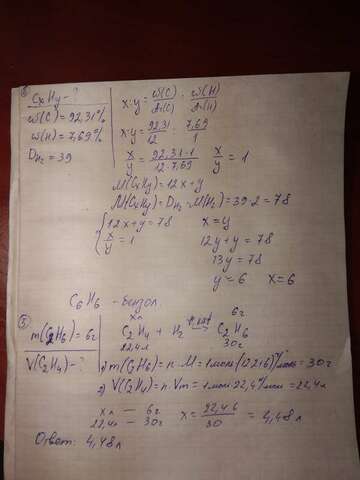 CxHy - ?
ω(C) = 92,31%
ω(H) = 7,69%
D H₂ = 39
x:y = ω(C)/Ar(C) : ω(H)/Ar(H)
x:y = 92,31/12 : 7,69/1
x/y = 92,31·1/12·7,69 x/y = 1
M(CxHy) = 12x+y
M(CxHy) = D H₂ · M(H₂) = 39·2 = 78
{ 12x+y = 78 x = y
x/y = 1 12y+y = 78
13y = 78
y = 6 x = 6
C₆H₆ - бензол
③
m(C₂H₆) = 6г
V(C₂H₄) - ?
xл 6г
C₂H₄ + H₂ → C₂H₆
22,4л 30г
1) m(C₂H₆) = n·M = 1моль·(12·2+6)г/моль = 30г
2) V(C₂H₄) = n·Vm = 1моль·22,4л/моль = 22,4л
xл — 6г
22,4л — 30г x = 22,4·6/30 = 4,48л
Ответ: 4,48л